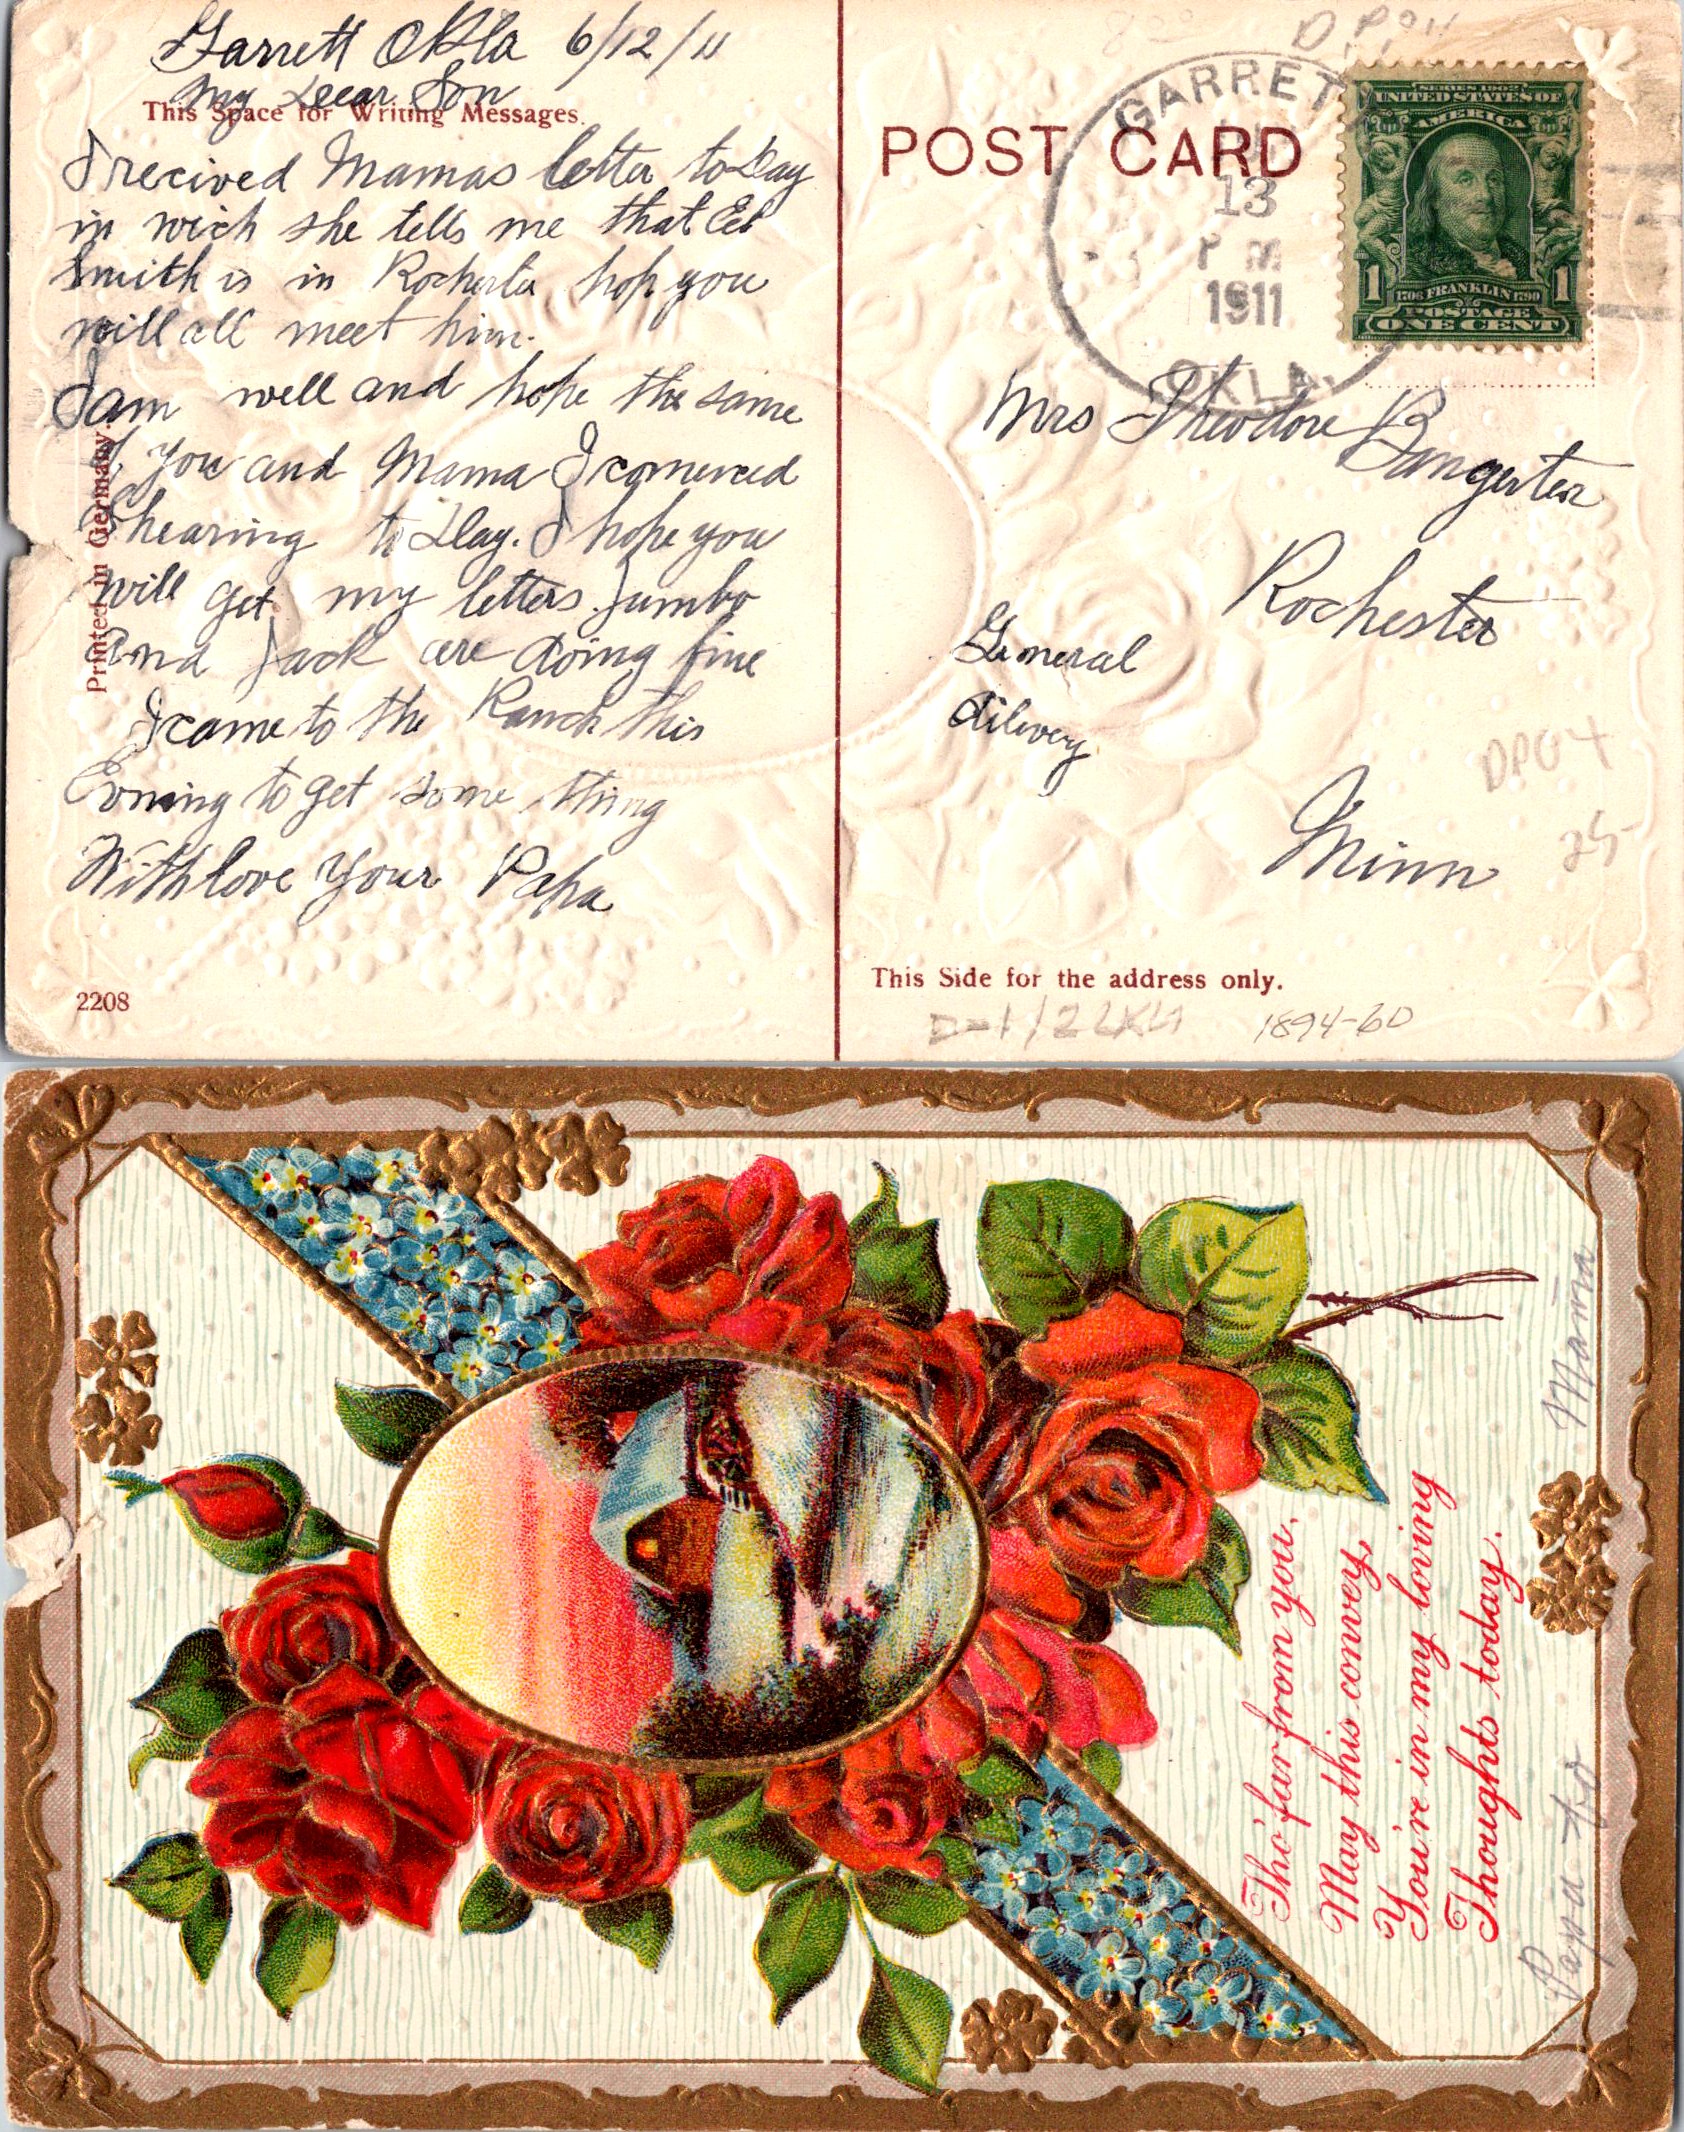 Garrett Okla 6/12/11
My Dear Son
This Space for Writing Messages.
I recived Mamas letter to Day
in wich she tells me that Ed
Smith is in Rochester hop you
will all meet him.
I am well and hope the same
of you and Mama I comenced
Shearing to Day. I hope you
will get my letters. Jumbo
and Jack are doing fine
I came to the Ranch this
Evning to get some thing
With love Your Papa
Printed in Germany.
2208
POST CARD
GARRETT
13
P M
1911
OKLA.
SERIES 1902
UNITED STATES OF
AMERICA
1 1706 FRANKLIN 1790 1
POSTAGE
ONE CENT
Mrs Theodore Bangerter
Rochester
General
Dilivery
Minn
DPO4
25-
This Side for the address only.
1894-60
Tho' far from you,
May this convey,
You're in my loving
Thoughts today.
Papa to Mama